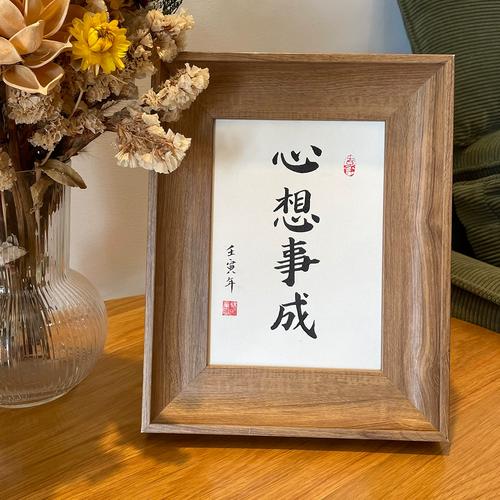 心想事成
壬寅年